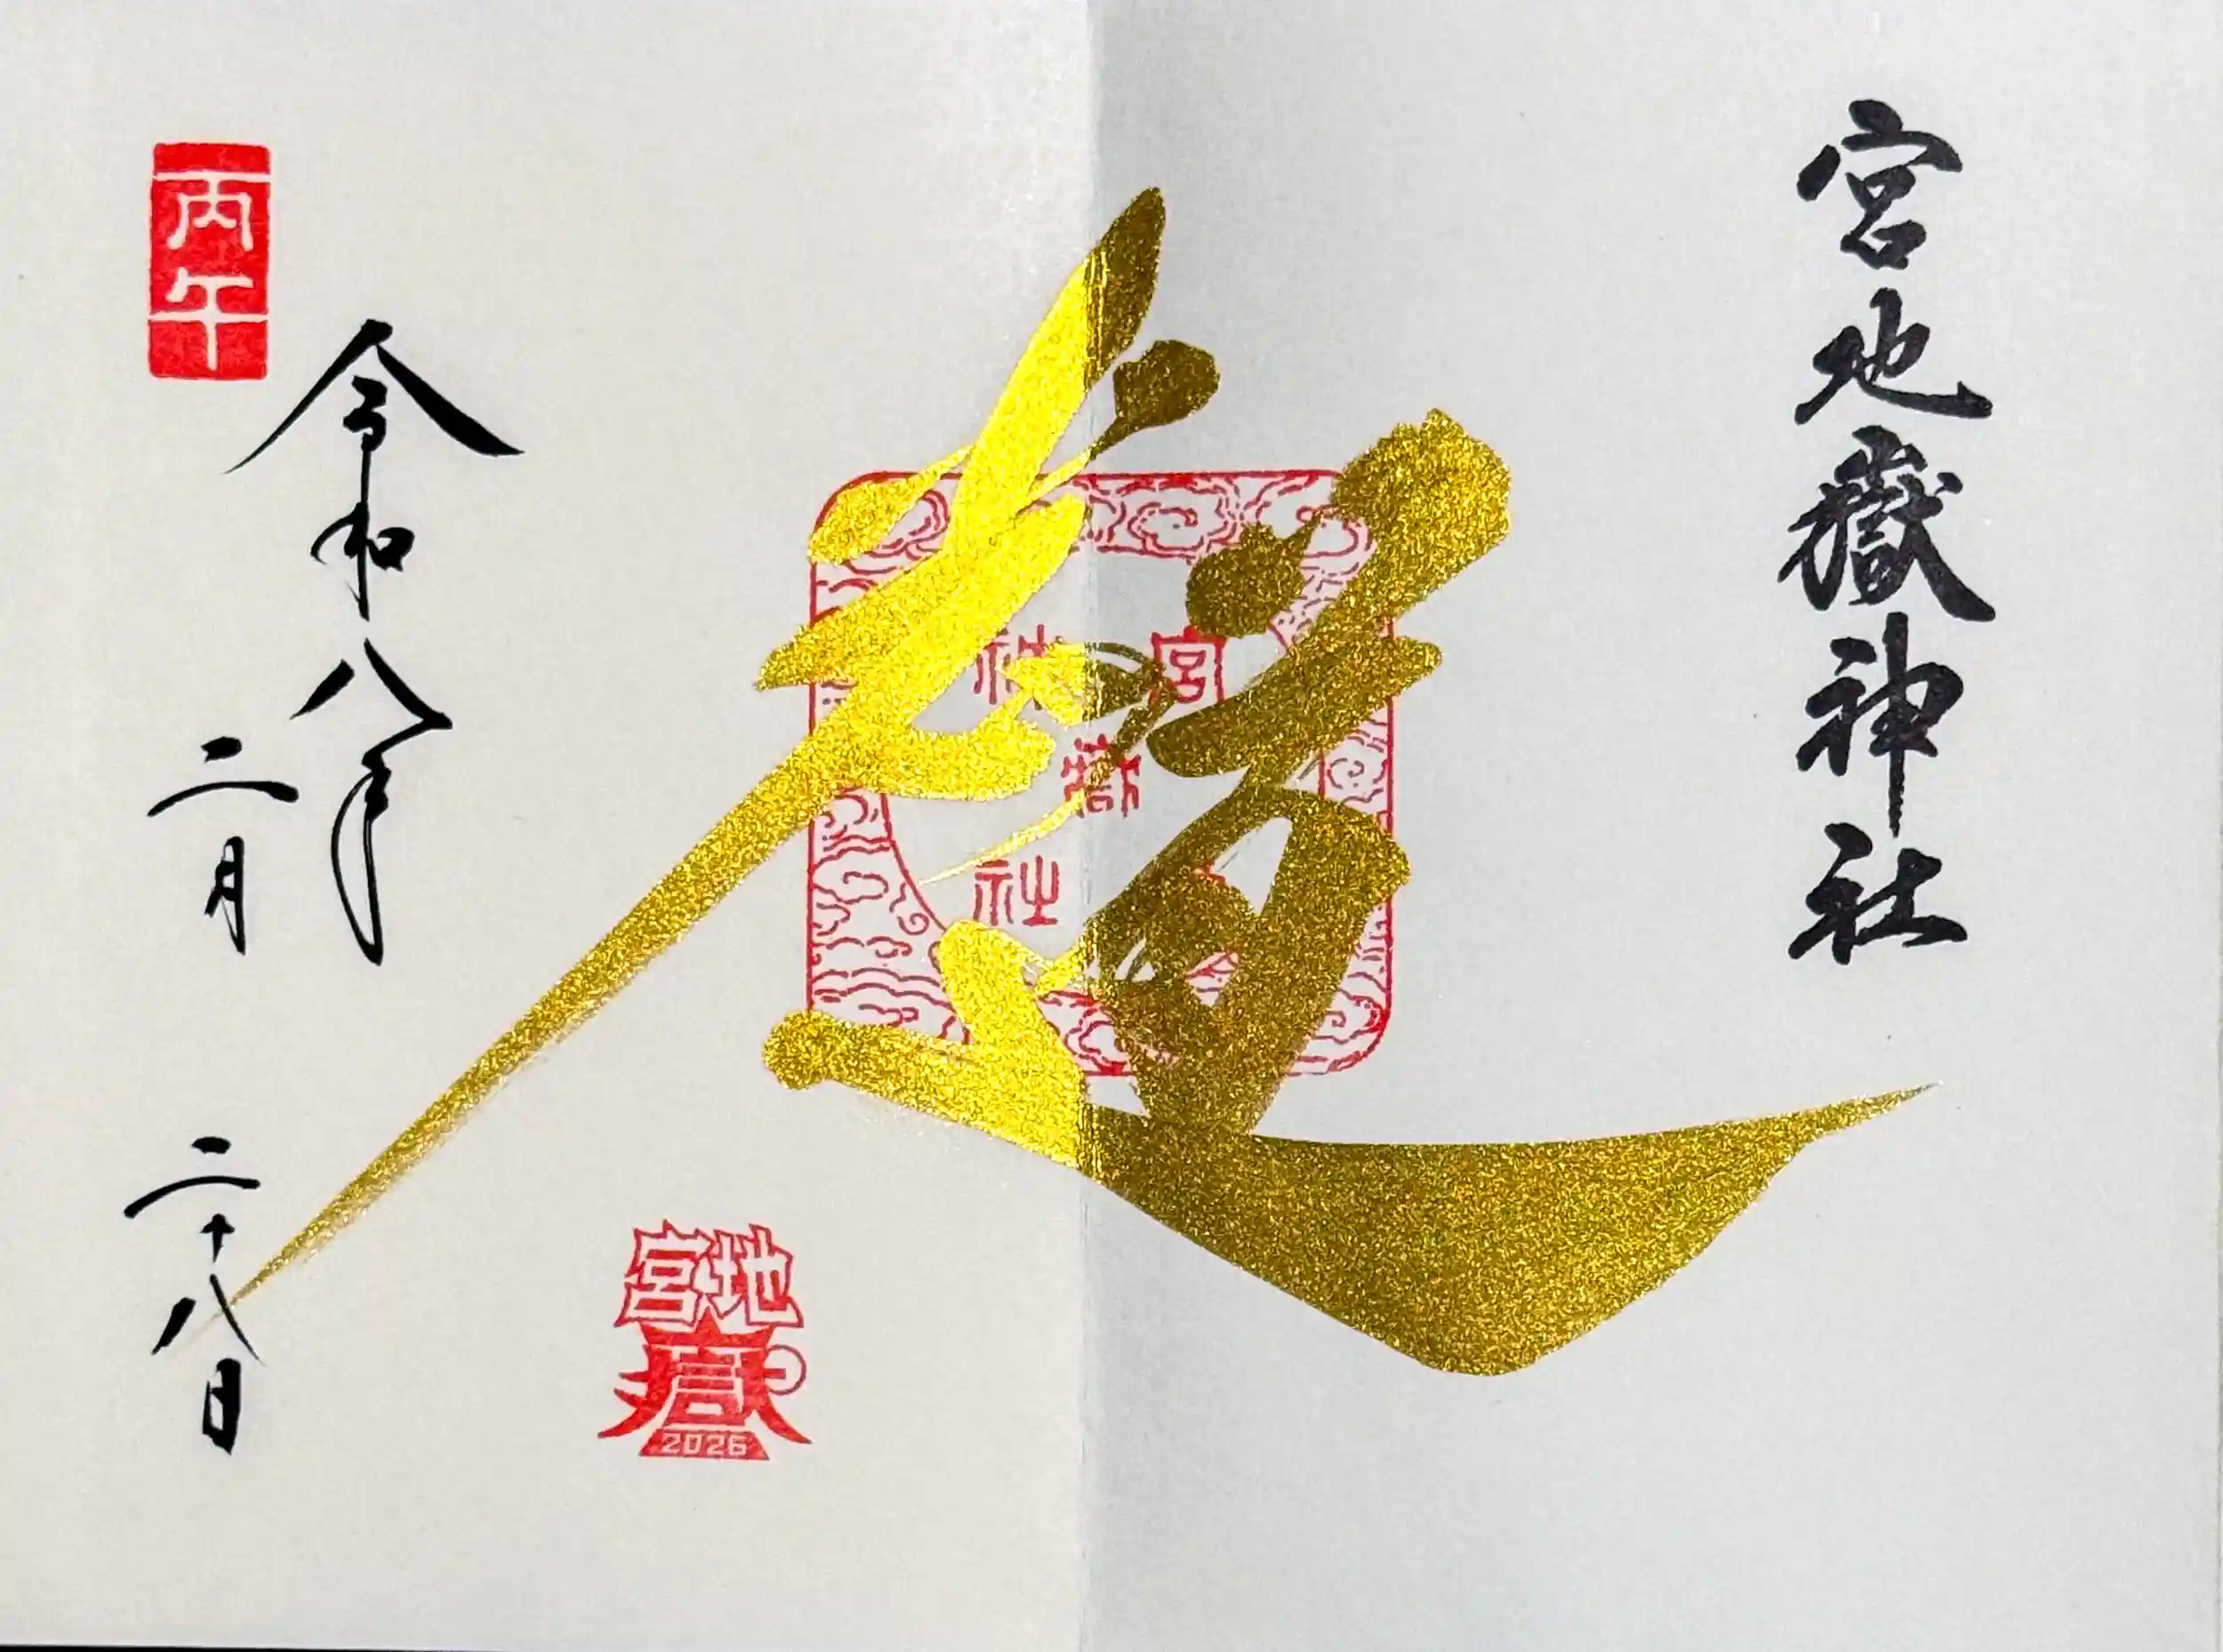 宮地嶽神社
光の道
宮
嶽
神社
令和八年
二月二十八日
丙午
宮地
嶽
2026